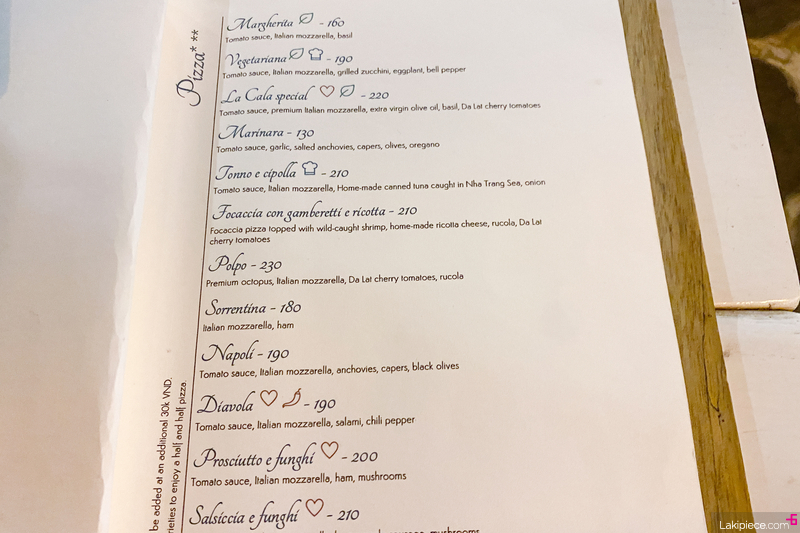 Pizza* **
Margherita - 160
Tomato sauce, Italian mozzarella, basil
Vegetariana - 190
Tomato sauce, Italian mozzarella, grilled zucchini, eggplant, bell pepper
La Cala special - 220
Tomato sauce, premium Italian mozzarella, extra virgin olive oil, basil, Da Lat cherry tomatoes
Marinara - 130
Tomato sauce, garlic, salted anchovies, capers, olives, oregano
Tonno e cipolla - 210
Tomato sauce, Italian mozzarella, Home-made canned tuna caught in Nha Trang Sea, onion
Focaccia con gamberetti e ricotta - 210
Focaccia pizza topped with wild-caught shrimp, home-made ricotta cheese, rucola, Da Lat
cherry tomatoes
Polpo - 230
Premium octopus, Italian mozzarella, Da Lat cherry tomatoes, rucola
Sorrentina - 180
Italian mozzarella, ham
Napoli - 190
Tomato sauce, Italian mozzarella, anchovies, capers, black olives
Diavola - 190
Tomato sauce, Italian mozzarella, salami, chili pepper
Prosciutto e funghi - 200
Tomato sauce, Italian mozzarella, ham, mushrooms
Salsiccia e funghi - 210
mushrooms
be added at an additional 30k VND.
rieties to enjoy a half and half pizza.
Lakipiece.com